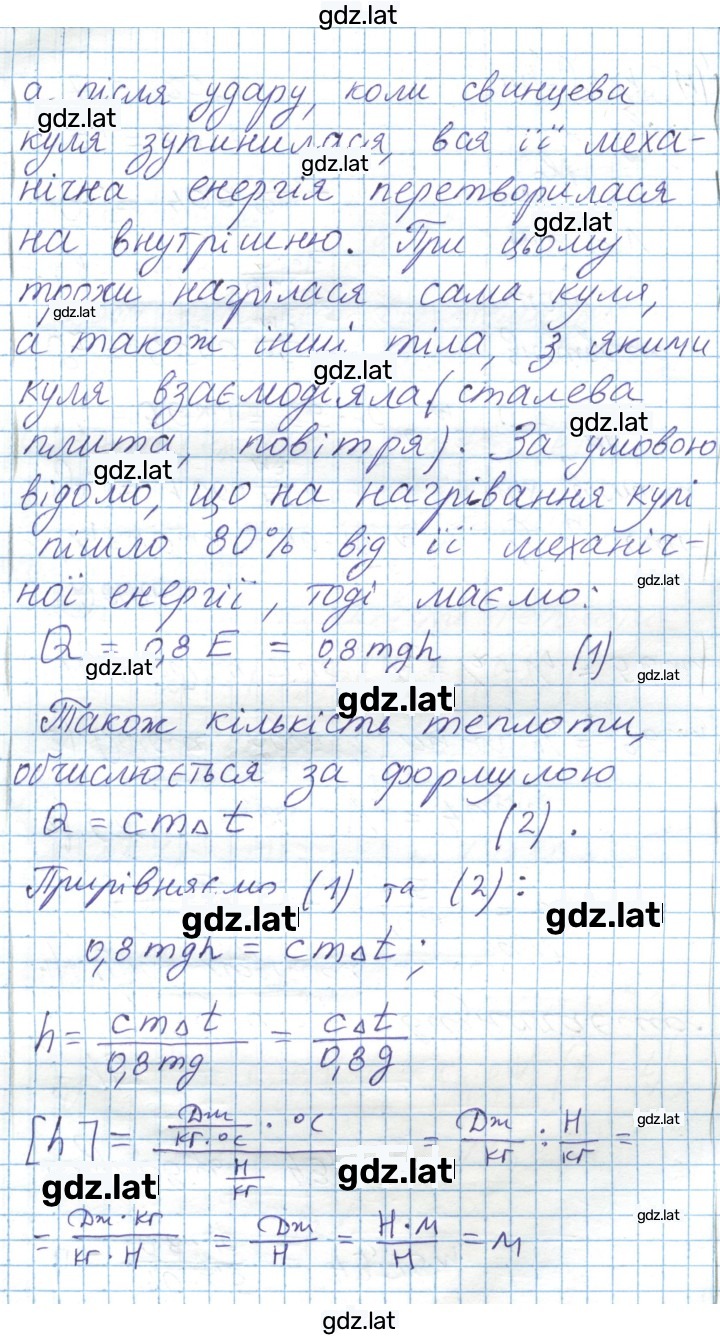 gdz.lat
а після удару, коли свинцева
gdz.lat
куля зупинилася, вся її меха-
gdz.lat
нічна енергія перетворилася
gdz.lat
на внутрішню. При цьому
трохи нагрілася сама куля,
gdz.lat
а також інші тіла, з якими
gdz.lat
куля взаємодіяла (сталева
gdz.lat
плита, повітря). За умовою
gdz.lat
відомо, що на нагрівання кулі
пішло 80% від її механіч-
gdz.lat
ної енергії, тоді маємо:
Q = 0,8 E = 0,8 mgh (1)
gdz.lat gdz.lat
gdz.lat
Також кількість теплоти,
обчислюється за формулою
Q = cmΔt (2).
Прирівняємо (1) та (2):
gdz.lat gdz.lat
0,8 mgh = cmΔt;
h = cmΔt / 0,8 mg = cΔt / 0,8 g
[h] = Дж / кг·°С · °С / Н / кг = Дж / кг : Н / кг =
gdz.lat
gdz.lat gdz.lat
= Дж·кг / кг·Н = Дж / Н = Н·м / Н = м
gdz.lat
gdz.lat